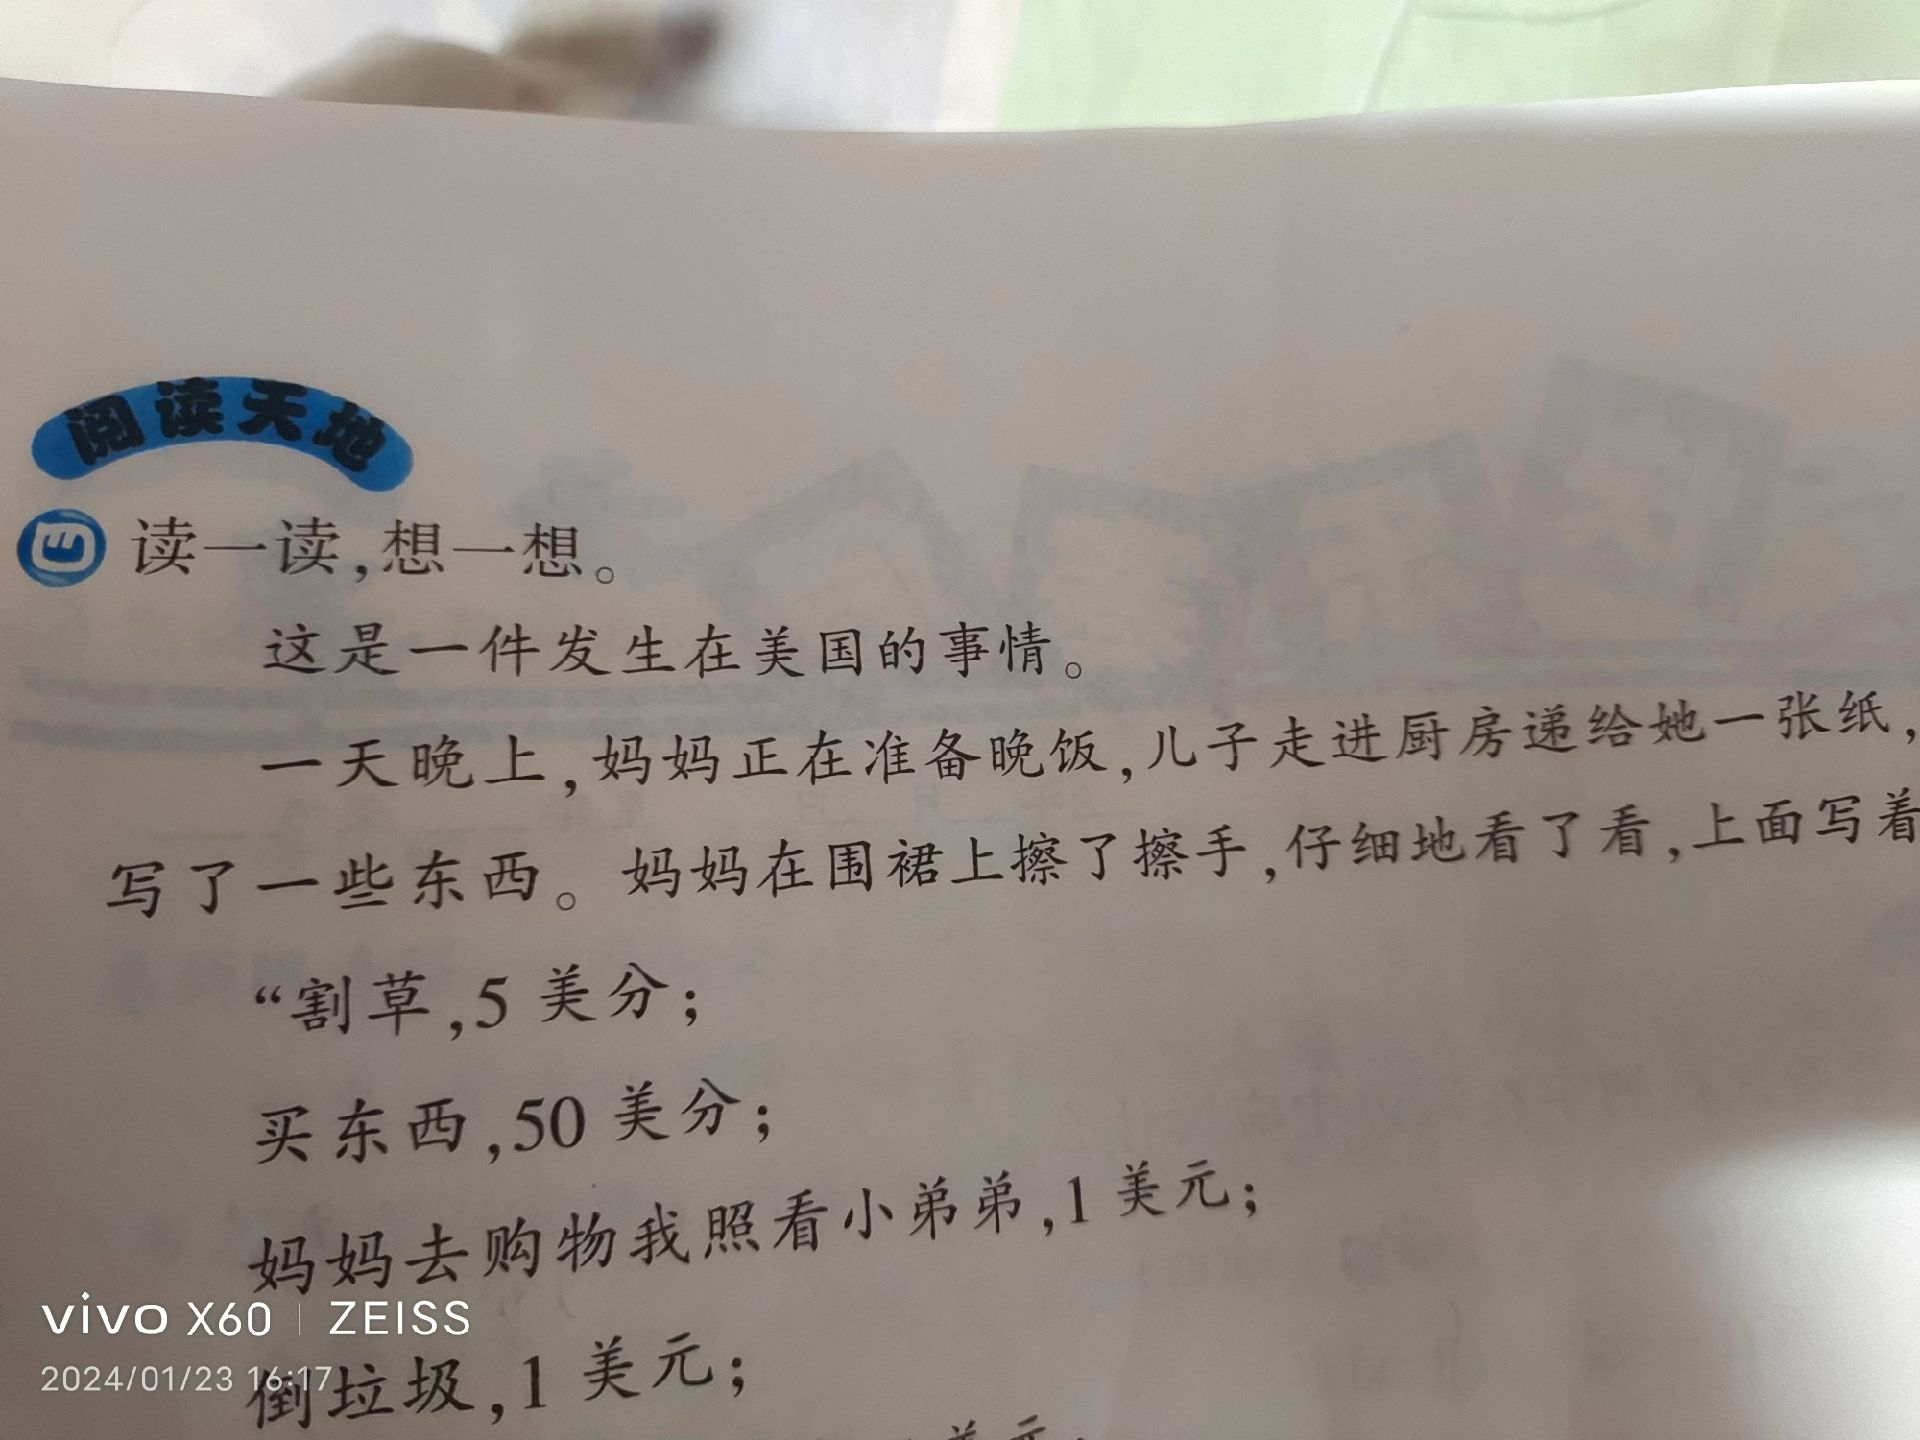 阅读天地
E 读一读,想一想。
这是一件发生在美国的事情。
一天晚上,妈妈正在准备晚饭,儿子走进厨房递给她一张纸,
写了一些东西。妈妈在围裙上擦了擦手,仔细地看了看,上面写着
“割草,5 美分;
买东西,50 美分;
妈妈去购物我照看小弟弟,1 美元;
倒垃圾,1 美元;
美元;
vivo X60 | ZEISS
2024/01/23 16:17